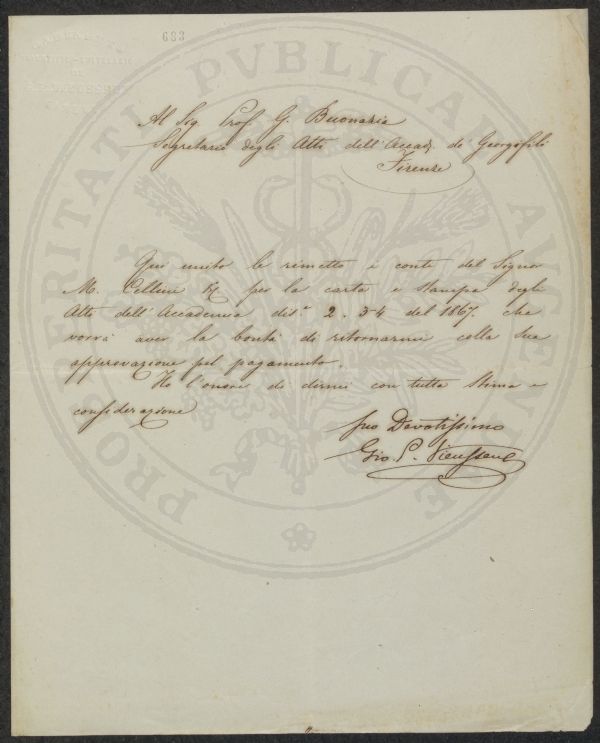 683
PROSPERITATI PVBLICAE AVGENDAE
Al Sig. Prof G. Buonazia
Segretario degli Atti dell'Accad. de Georgofili
Firenze
Qui unito le rimetto i conti del Signor
M. Cellini per la carta e stampa degli
Atti dell'Accademia 2. 3 4 del 1867. che
vorrà aver la bontà di ritornarmi colla sua
approvazione pel pagamento.
Ho l'onore di dirmi con tutta stima e
considerazione
suo Devotissimo
Gio. P. Vieusseux